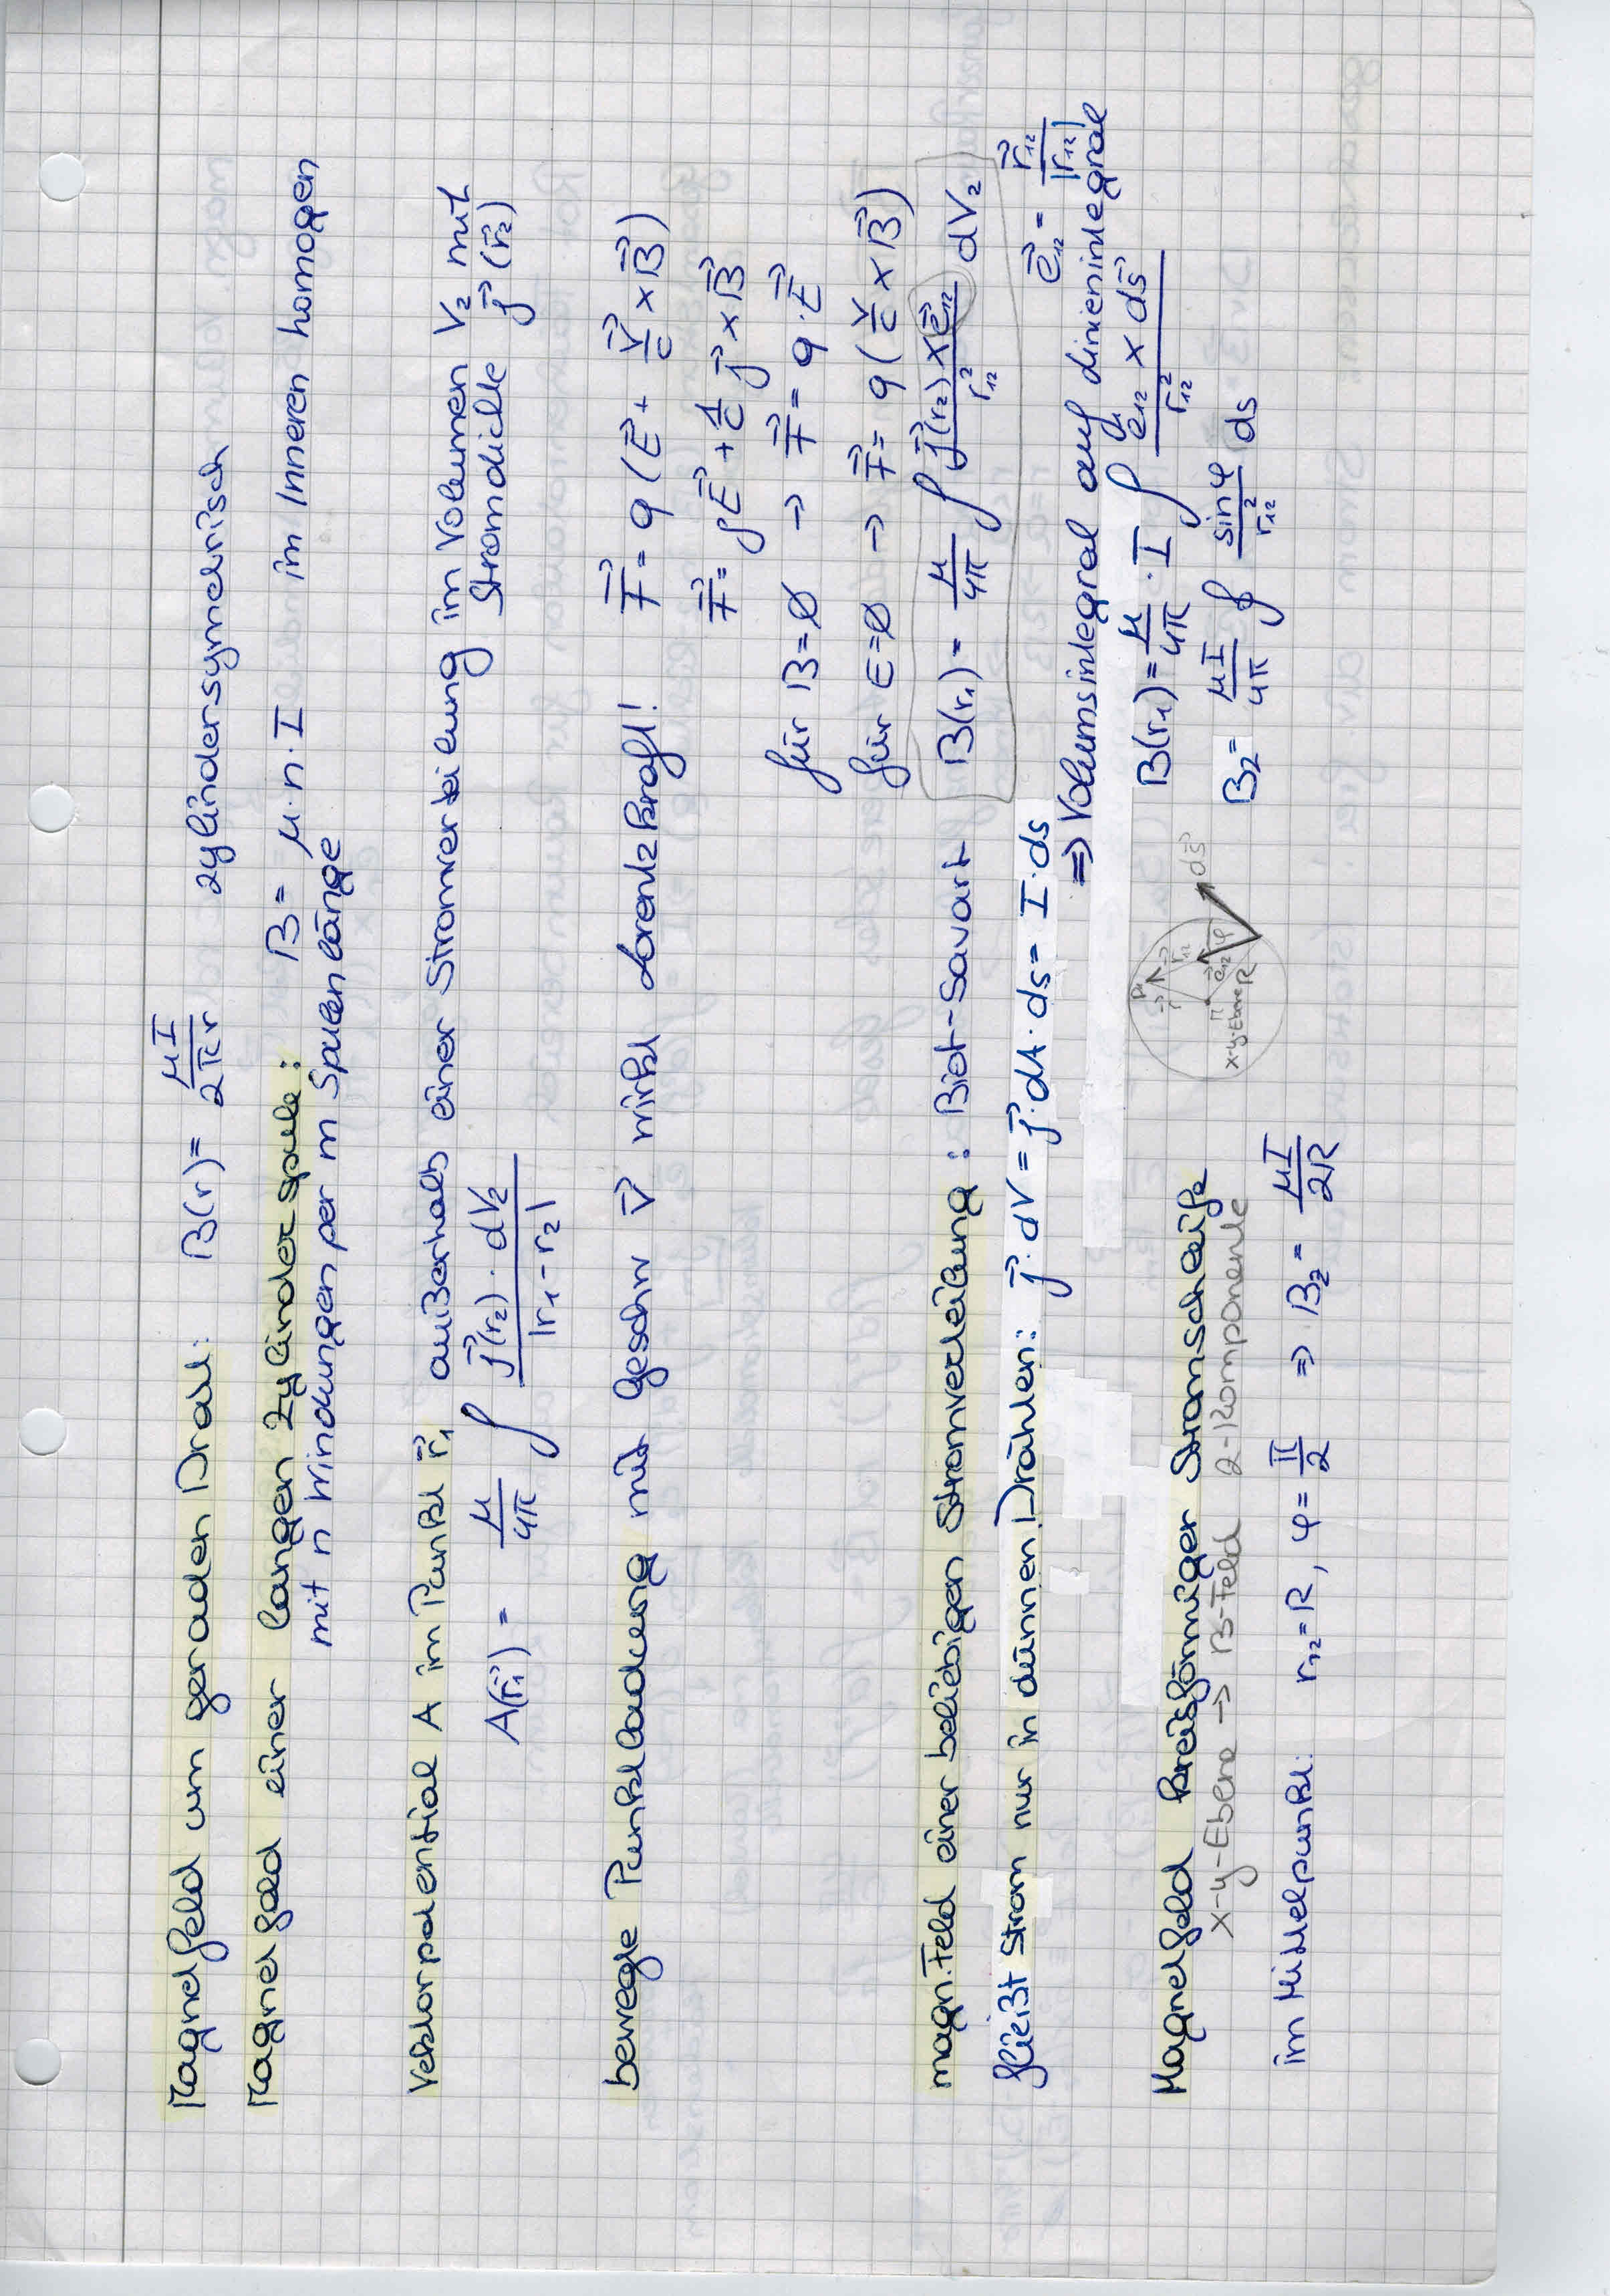 Magnetfeld um geraden Draht: B(r) = μI / 2πr zylindersymetrisch
Magnetfeld einer langen Zylinderspule: B = μ · n · I im Inneren homogen
mit n Windungen per m Spulenlänge
Vektorpotential A im Punkt r⃗₁ außerhalb einer Stromverteilung im Volumen V₂ mit
Stromdichte j⃗(r⃗₂)
A(r⃗₁) = μ/4π ∫ j⃗(r₂) · dV₂ / |r₁ - r₂|
bewegte Punktladung mit geschw v⃗ wirkt Lorentzkraft! F⃗ = q (E⃗ + v⃗/c × B⃗)
F⃗ = ρE⃗ + 1/c j⃗ × B⃗
für B = ∅ → F⃗ = q · E⃗
für E = ∅ → F⃗ = q (v/c × B⃗)
magn. Feld einer beliebigen Stromverteilung: Biot-Savart B(r₁) = μ/4π ∫ j⃗(r₂) × e⃗₁₂ / r₁₂² dV₂
e⃗₁₂ = r⃗₁₂ / |r⃗₁₂|
fließt Strom nur in dünnen Drähten: j⃗ · dV = j⃗ · dA · ds = I · ds
⇒ Volumsintegral auf Linienintegral
B(r₁) = μ/4π · I ∫ e⃗₁₂ × ds⃗ / r₁₂²
Magnetfeld kreisförmiger Stromschleife
x-y-Ebene → B-Feld z-Komponente
Bz = μI/4π ∮ sinφ / r₁₂² ds
P₁ r⃗ r⃗₁₂ e⃗₁₂ φ ds⃗
R
x-y-Ebene
im Mittelpunkt: r₁₂ = R, φ = π/2 ⇒ Bz = μI / 2R